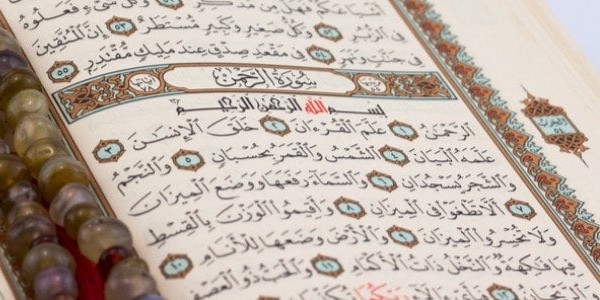 أَشْيَاعَكُمْ فَهَلْ مِن مُّدَّكِرٍ ٥١ وَكُلُّ شَىْءٍ فَعَلُوهُ
فِى ٱلزُّبُرِ ٥٢ وَكُلُّ صَغِيرٍ وَكَبِيرٍ مُّسْتَطَرٌ ٥٣ إِنَّ ٱلْمُتَّقِينَ
فِى جَنَّٰتٍ وَنَهَرٍ ٥٤ فِى مَقْعَدِ صِدْقٍ عِندَ مَلِيكٍ مُّقْتَدِرٍ ٥٥
سُورَةُ الرَّحْمٰن
بِسْمِ ٱللَّهِ ٱلرَّحْمَٰنِ ٱلرَّحِيمِ
ٱلرَّحْمَٰنُ ١ عَلَّمَ ٱلْقُرْءَانَ ٢ خَلَقَ ٱلْإِنسَٰنَ ٣
عَلَّمَهُ ٱلْبَيَانَ ٤ ٱلشَّمْسُ وَٱلْقَمَرُ بِحُسْبَانٍ ٥ وَٱلنَّجْمُ
وَٱلشَّجَرُ يَسْجُدَانِ ٦ وَٱلسَّمَآءَ رَفَعَهَا وَوَضَعَ ٱلْمِيزَانَ
٧ أَلَّا تَطْغَوْا۟ فِى ٱلْمِيزَانِ ٨ وَأَقِيمُوا۟ ٱلْوَزْنَ بِٱلْقِسْطِ
وَلَا تُخْسِرُوا۟ ٱلْمِيزَانَ ٩ وَٱلْأَرْضَ وَضَعَهَا لِلْأَنَامِ ١٠
فِيهَا فَٰكِهَةٌ وَٱلنَّخْلُ ذَاتُ ٱلْأَكْمَامِ ١١ وَٱلْحَبُّ ذُو ٱلْعَصْفِ